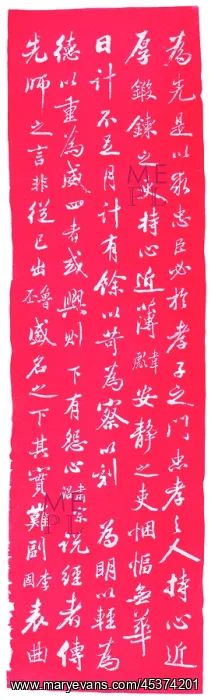 為先是以求忠臣必於孝子之門忠孝之人持心近
厚鍛鍊之吏持心近薄韋彪安靜之吏悃愊無華
日計不足月計有餘以苛為察以刻為明以輕為
德以重為威四者或興則下有怨心肅宗詔說經者傳
先師之言非從己出魯丕盛名之下其實難副李固表曲
ME
PL
ME
PL
www.maryevans.com/45374201